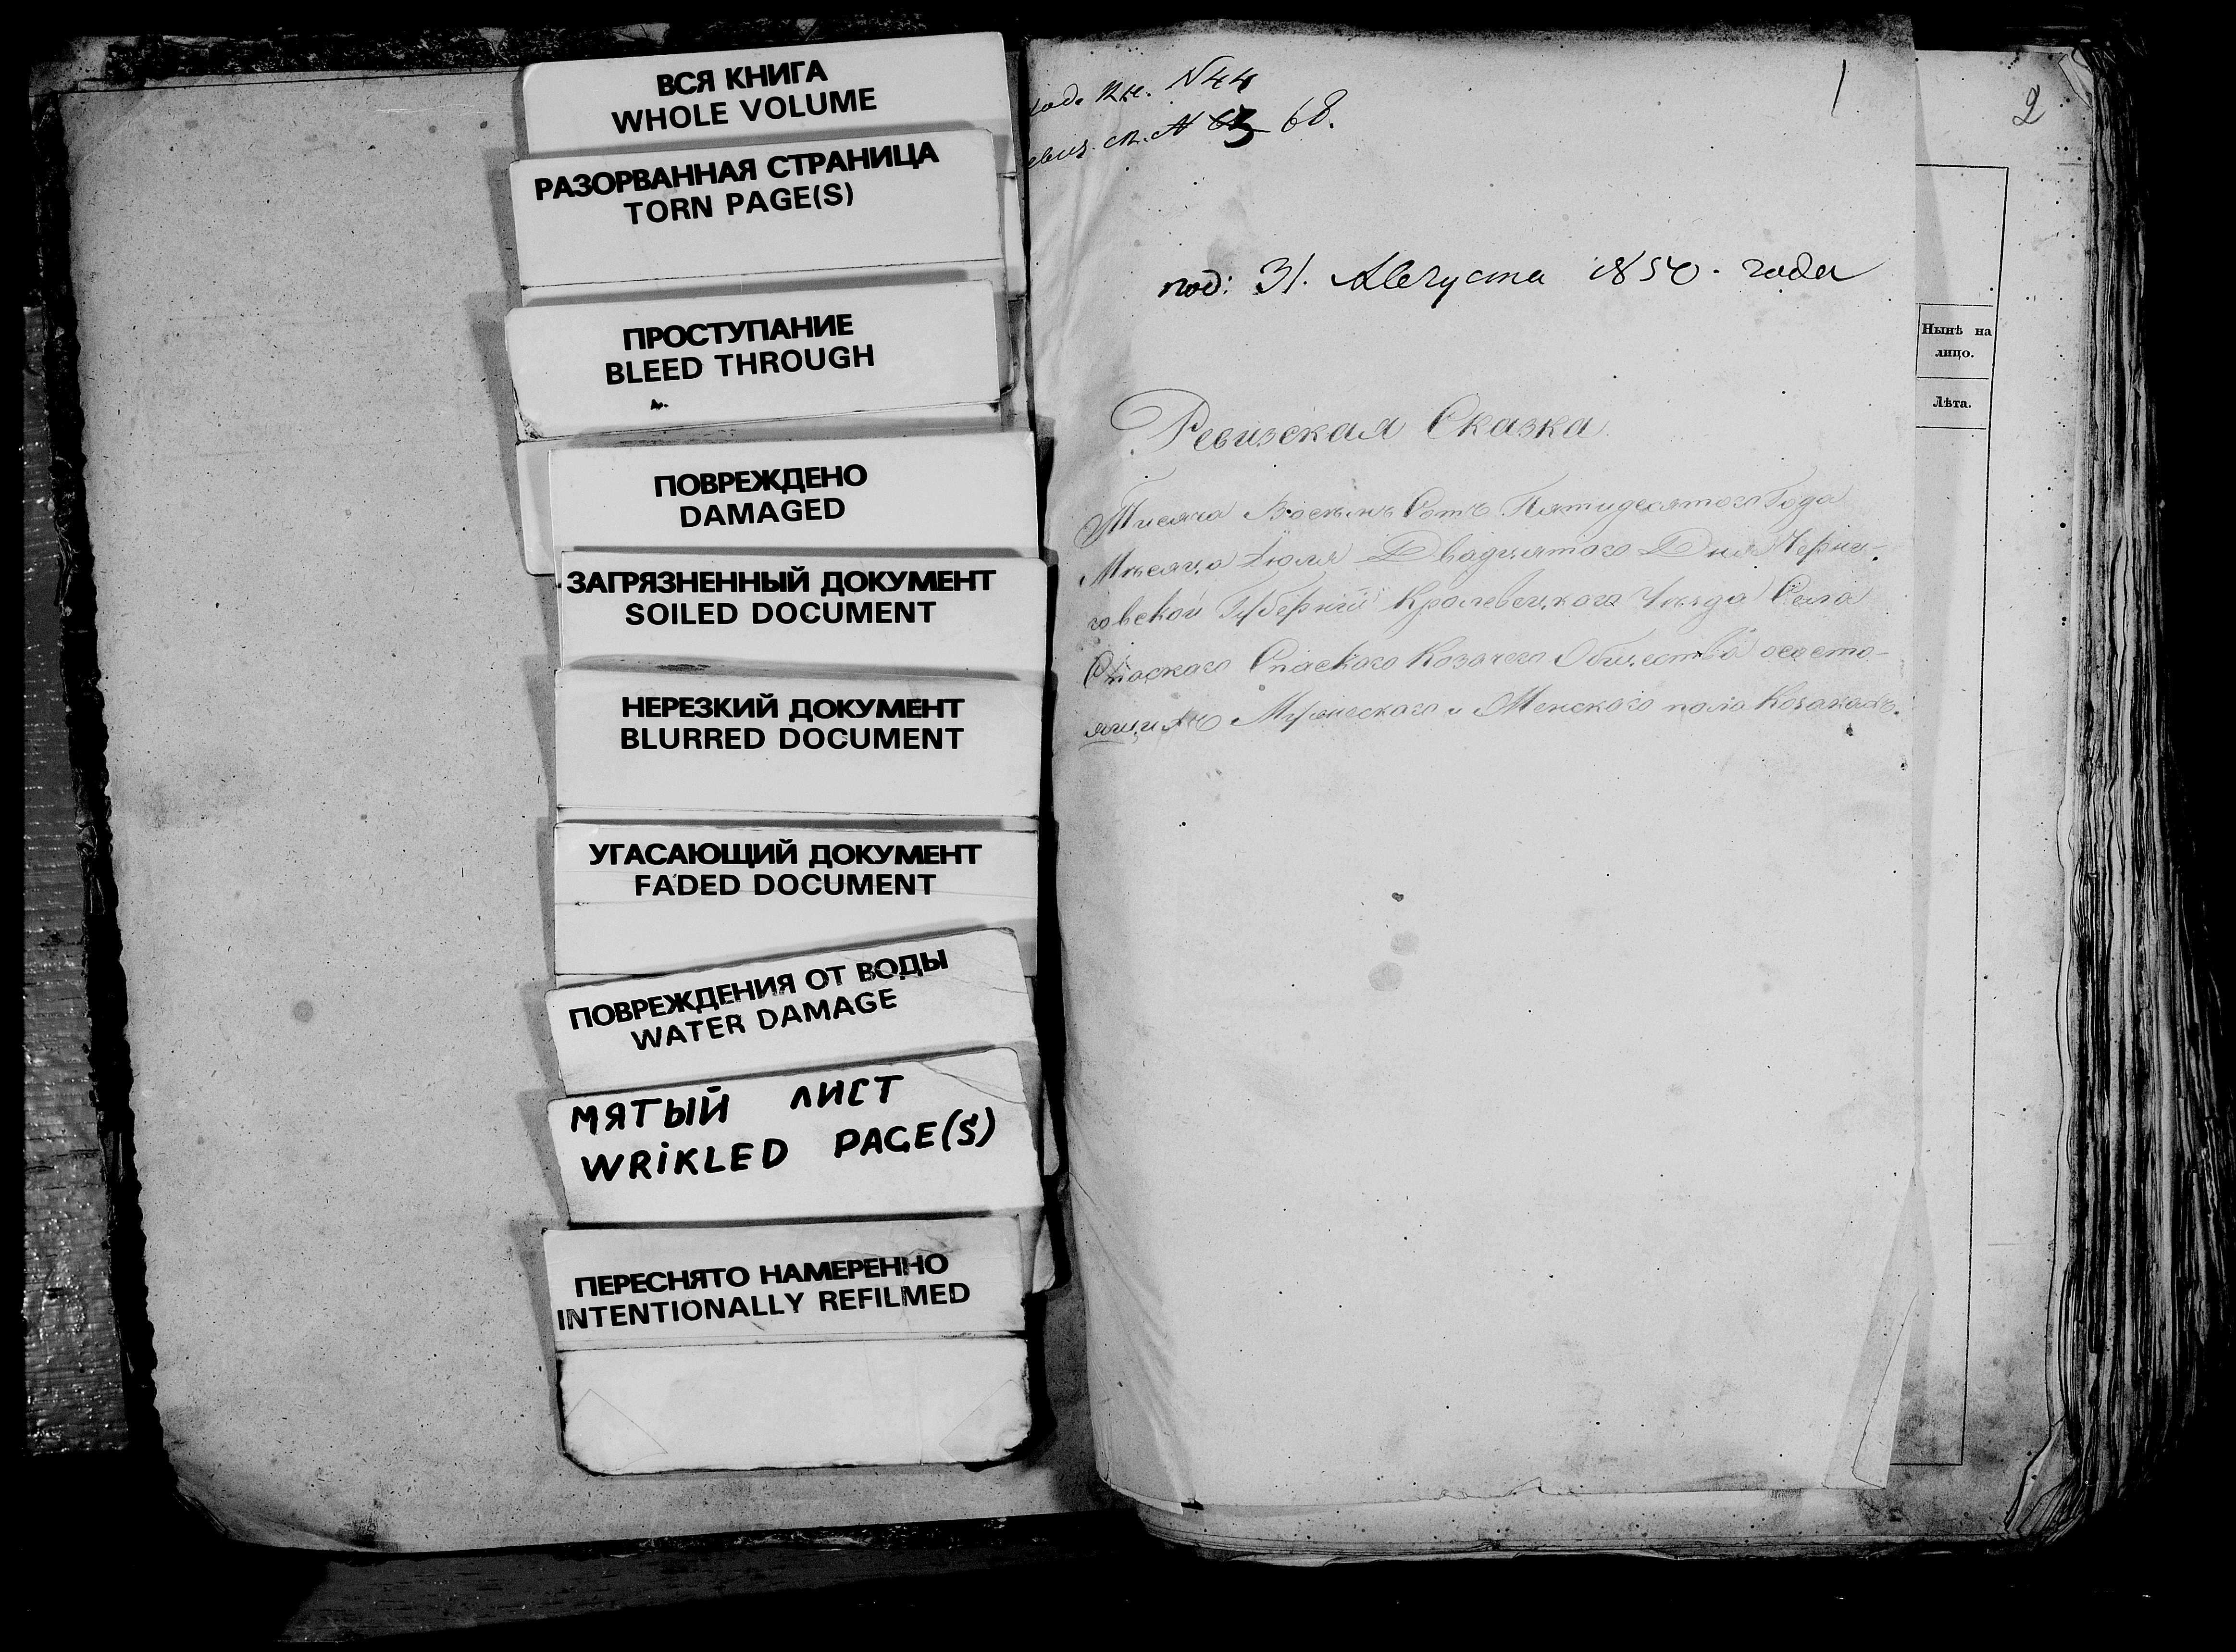 ВСЯ КНИГА
WHOLE VOLUME
РАЗОРВАННАЯ СТРАНИЦА
TORN PAGE(S)
ПРОСТУПАНИЕ
BLEED THROUGH
ПОВРЕЖДЕНО
DAMAGED
ЗАГРЯЗНЕННЫЙ ДОКУМЕНТ
SOILED DOCUMENT
НЕРЕЗКИЙ ДОКУМЕНТ
BLURRED DOCUMENT
УГАСАЮЩИЙ ДОКУМЕНТ
FADED DOCUMENT
ПОВРЕЖДЕНИЯ ОТ ВОДЫ
WATER DAMAGE
МЯТЫЙ ЛИСТ
WRIKLED PAGE(S)
ПЕРЕСНЯТО НАМЕРЕННО
INTENTIONALLY REFILMED
N 44
68.
1
под: 31. Августа 1850. года
Ревизская Сказка
Тисяча Восемь Сотъ Пятидесятого Года
Мѣсяца Июля Двадцятого Дня Черни-
говской Губерний Кролевецкого Уезда Села
Спаского Спаского Козачего Общества ососто-
ящихъ Мужеского и Женского пола Козакахъ.
2
Нынѣ на
лицо.
Лѣта.